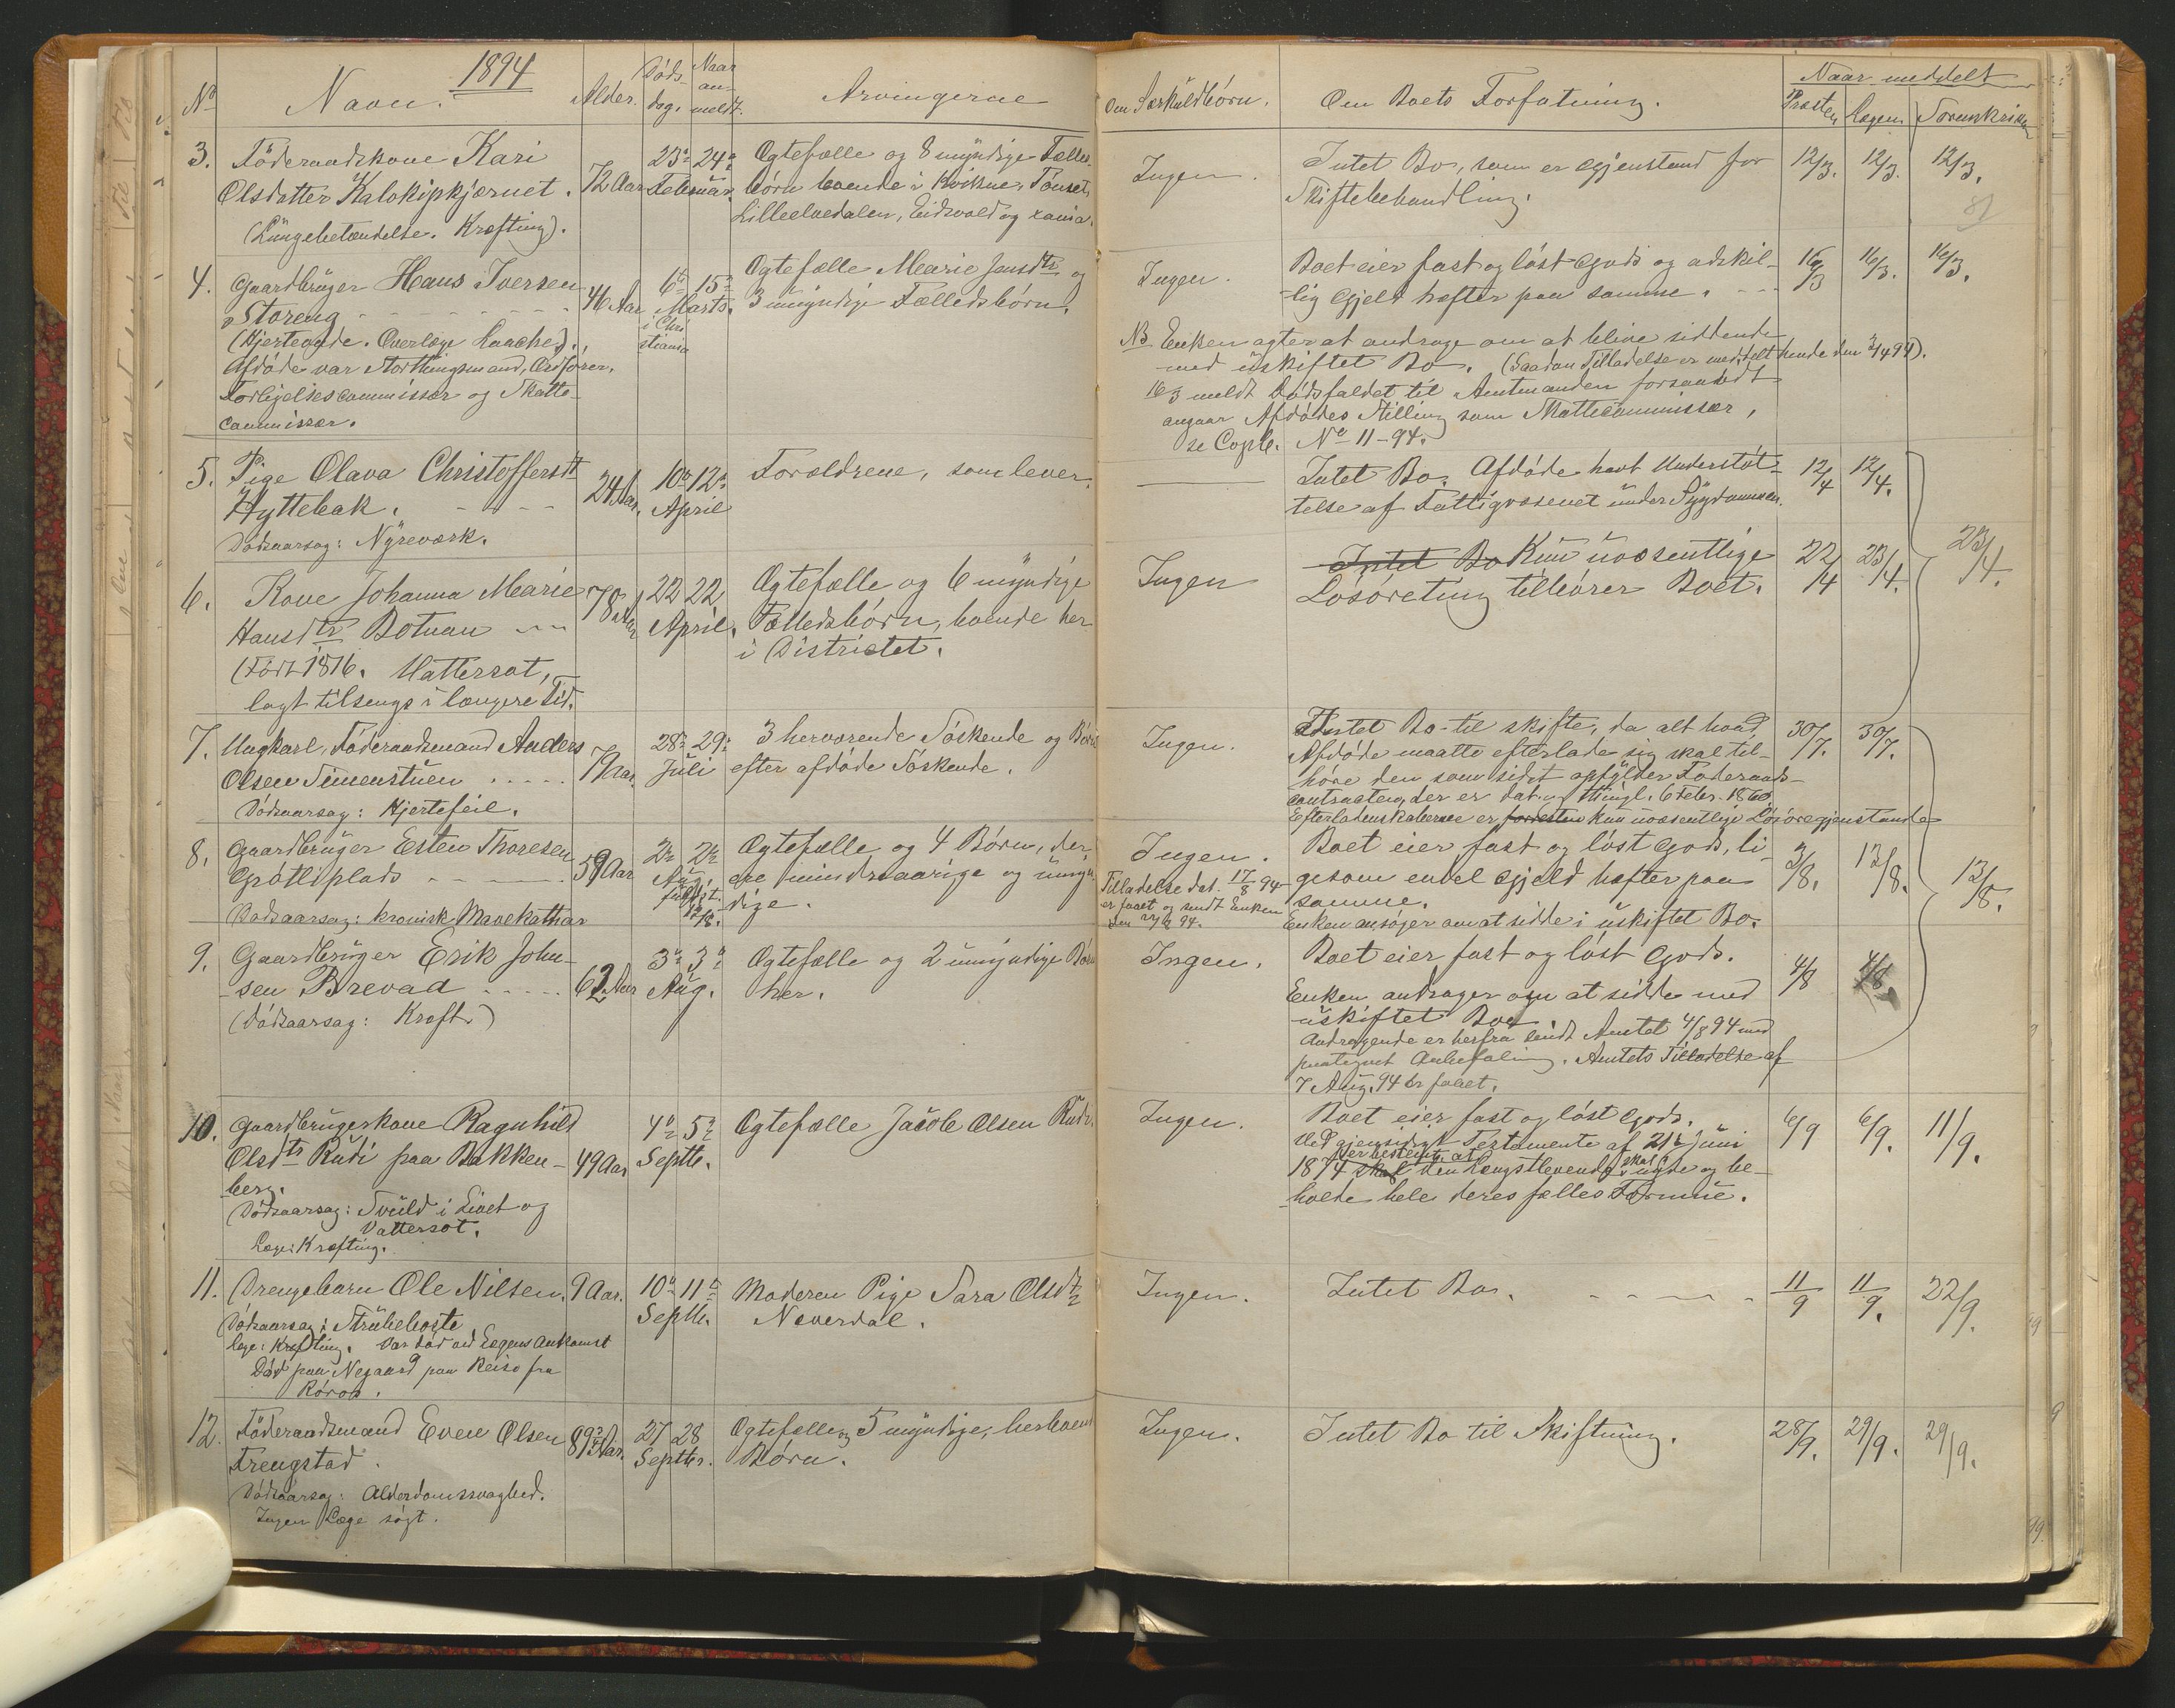 1894
No Navn. Alder. Døds- dag. Naar an- meldt. Arvingerne
Om Særkuldbørn. Om Boets Forfatning. Naar meddelt
Præsten Lægen Sorenskriver
3. Föderaadskone Kari
Olsdatter Kaloskipkjærnet. 72 Aar
(Lüngebetændelse. Kræfting).
23de 24de
Februar.
Ægtefælle og 8 myndige Fælles-
børn boende i Kvikne, Tönset,
Lilleelvedalen, Eidsvold og Xania.
Ingen.
Intet Bo, som er Gjenstand for
Skiftebehandling.
12/3. 12/3. 12/3.
4. Gaardbrüger Hans Iversen
Storeng 46 Aar
(Hjerteonde. Overlæge Laache).
Afdøde var Storthingsmand, Ordfører,
Forligelsescommissær og Skatte-
commissær.
6te 15de
Marts.
i Chri
stiania
Ægtefælle Marie Jensdtr og
3 umyndige Fælledsbørn.
Ingen.
Boet eier fast og løst Gods og adskil-
lig Gjeld hæfter paa samme.
16/3 16/3. 16/3.
NB Enken agter at andrage om at blive siddende
med uskiftet Bo. (Saadan Tilladelse er meddelt hende den 2/4 94).
16/3 meldt Dødsfaldet til Amtmanden forsaavidt
angaar Afdødes Stilling som Skattecommissær,
se Copb. No 11-94.
5. Pige Olava Christoffersdt
Hyttebak. 24 Aar.
Dødsaarsag: Nyreværk.
10de 12de
April
Forældrene, som lever.
Intet Bo. Afdøde havt Understøt-
telse af Fattigvæsenet under Sygdommen.
12/4 12/4.
6. Kone Johanna Marie
Hansdtr Botnan 78 Aar
(Født 1816. Vattersot,
lagt tilsengs i længere Tid.
22 22
April.
Ægtefælle og 6 myndige
Fælledsbørn, boende her
i Districtet.
Ingen
Intet Bo Kun uvæsentlige
Løsøreting tilhører Boet.
22/4 23/4. 23/4.
7. Ungkarl, Föderaadsmand Anders
Olsen Simenstuen 79 Aar.
Dødsaarsag: Hjertefeil.
28de 29de
Juli
3 herværende Søskende og Børn
efter afdøde Søskende.
Ingen.
Intet Bo til skifte, da alt hvad
Afdøde maatte efterlade sig skal til-
høre den som sidst opfylder Föderaads-
contracten, der er dat. og thingl. 6 Febr. 1860.
Efterladenskaberne er forresten kun uvæsentlige Løsøregjenstande
30/7. 30/7.
8. Gaardbrüger Esten Thoresen
Grøtliplads 59 Aar
Dødsaarsag: kronisk Mavekathar
2de 2de
Aug.
Ægtefælle og 4 Børn, der,
ere mindreaarige og umyn
dige.
Ingen.
Tilladelse dat. 17/8 94
er faaet og sendt Enken
Boet eier fast og løst Gods, li-
gesom endel Gjeld hæfter paa
samme.
Enken ansøger om at sidde i uskiftet Bo.
3/8. 13/8. 13/8.
9. Gaardbrüger Erik John-
sen Brevad 62 Aar
(Dødsaarsag: Kræft.)
3de 3de
Aug.
Ægtefælle og 2 umyndige Børn
her.
Ingen.
Boet eier fast og løst Gods.
Enken andrager om at sidde med
uskiftet Bo.
Andragende er herfra sendt Amtet 4/8 94 med
paategnet Anbefaling. Amtets Tilladelse af
7 Aug. 94 er faaet.
4/8 4/8
10. Gaardbrugerkone Ragnhild
Olsdtr Rudi paa Bakken-
berg. 49 Aar
Dødsaarsag: Svuld i Livet og
Vattersot.
Læge: Kræfting.
4de 5de
Septb.
Ægtefælle Jacob Olsen Rudi
Ingen.
Boet eier fast og løst Gods.
Ved gjensidigt Testamente af 21de Juni
1874 er bestemt at skal den Længstlevende skal nyde og be-
holde hele deres fælles Formue.
6/9 6/9. 11/9.
11. Drengebarn Ole Nilsen. 9 Aar.
Dødsaarsag: Strübehoste
Læge: Kræfting. Var død ved Lægens Ankomst
Død paa Negaard paa Reise fra
Røros.
10de 11te
Septb.
Moderen Pige Sara Olsdtr
Neverdal.
Ingen.
Intet Bo.
11/9 11/9. 22/9.
12. Föderaadsmand Even Olsen
Trengstad. 89 3/4 Aar.
Dødsaarsag: Alderdomssvaghed.
Ingen Læge søgt.
27 28
Septbr.
Ægtefælle og 5 myndige, herboende
Børn.
Ingen.
Intet Bo til Skiftning.
28/9. 29/9. 29/9.